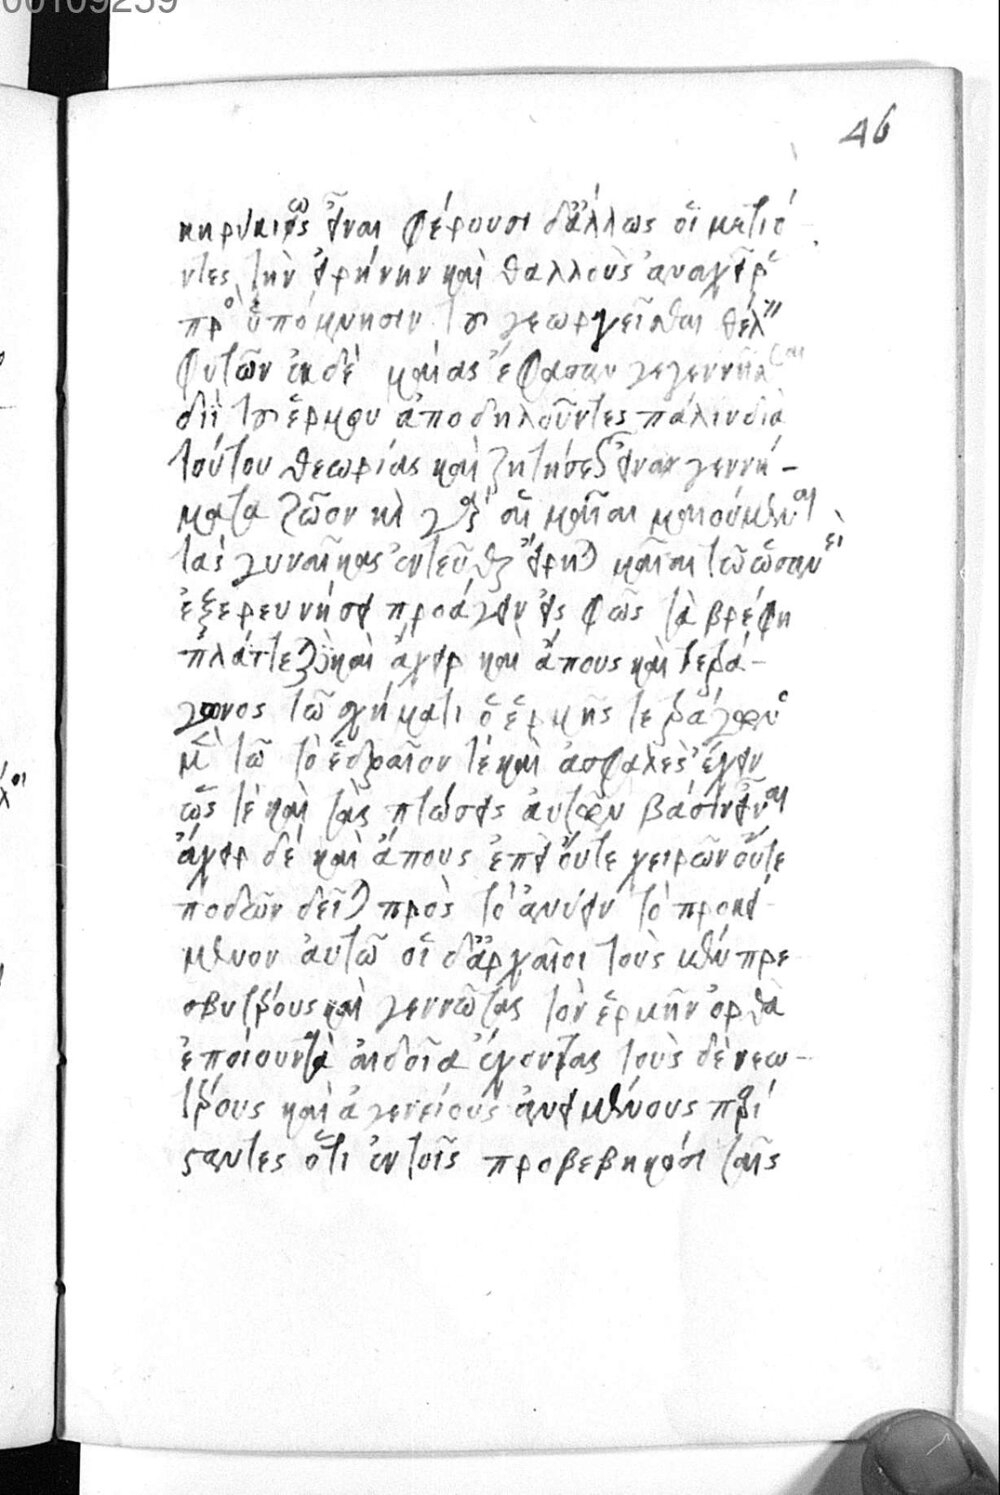 00109259
46
κηρυκίῳ ὡς εἶναι φέρουσι δ' ἄλλως οἱ μετιό
ντες τὴν εἰρήνην καὶ θαλλοὺς ἀνατείν
πρὸς ὑπόμνησιν τοῦ γεωργεῖσθαι θέλειν
φυτῶν ἐκ δὲ μαίας ἔφασαν γεγεννῆσθαι
διῒ τὸν ἑρμῆν ἀποδηλοῦντες πάλιν διὰ
τούτου θεωρίας καὶ ζητήσεως εἶναι γεννή-
ματα τὸν καὶ γὰρ αἱ μαῖαι μαιούμεναι
τὰς γυναῖκας ἐντεῦθεν εἴρηνται μαῖαι τῷ ὡσανεὶ
ἐξερευνήσει προάγειν εἰς φῶς τὰ βρέφη
πλάττεται δὲ καὶ ἄχειρ καὶ ἄπους καὶ τετρά-
γωνος τῷ σχήματι ὁ ἑρμῆς τετράγωνος
μὲν τῷ τὸ ἑδραῖον τὲ καὶ ἀσφαλὲς ἔχειν
ὥς τὲ καὶ τὰς πτώσεις αὐτοῦ βάσεις εἶναι
ἄχειρ δὲ καὶ ἄπους ἐπεὶ οὔτε χειρῶν οὔτε
ποδῶν δεῖται πρὸς τὸ ἀνύειν τὸ προκεί
μενον αὐτῷ οἱ δ' ἀρχαῖοι τοὺς μὲν πρε
σβυτέρους καὶ γεννῶντας τὸν ἑρμῆν ὀρθὰ
ἐποίουν τὰ αἰδοῖα ἔχοντας τοὺς δὲ νεω-
τέρους καὶ ἀγενείους ἀνειμένους παρι
σταντες ὅτι ἐν τοῖς προβεβηκόσι ταῖς